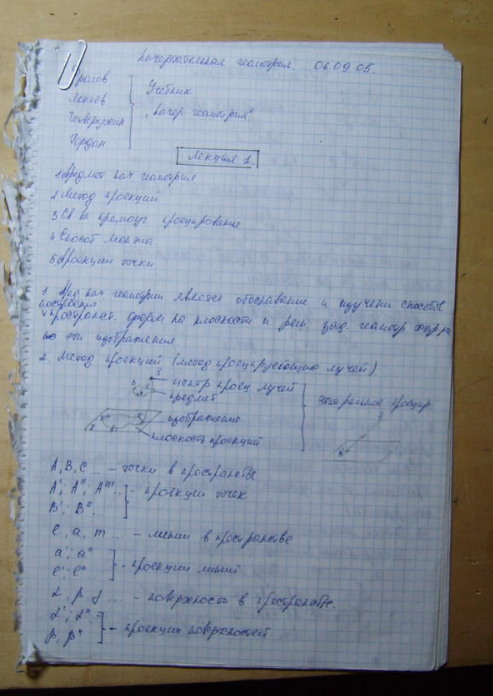 Начертательная геометрия. 06.09.05.
Фролов
Учебник
„Начер. геометрия"
Четверухин
Гордон
Лекция 1.
1. Предмет нач геометрия
2. Метод проекций
3. Св-ва прямоуг. проецирование
4. Способ Монжа
5. Проекции точки
1. Пред нач геометрии является обоснование и изучени способов
построения
пространст. форм на плоскости и реш. зад. геометр
по эти изображения
2. Метод проекций (метод проецирующих лучей)
S
центр проец лучей
предмет
изображение
плоскость проекций
S
A, B, C ... – точки в пространстве
A'; A''; A''' ...
B'; B'' ...
– проекции точек
ℓ, a, m ... – линии в пространстве
a'; a''
ℓ'; ℓ''
– проекции линий
α, β, γ ... – поверхности в пространстве.
α'; α''
β, β''
– проекции поверхностей